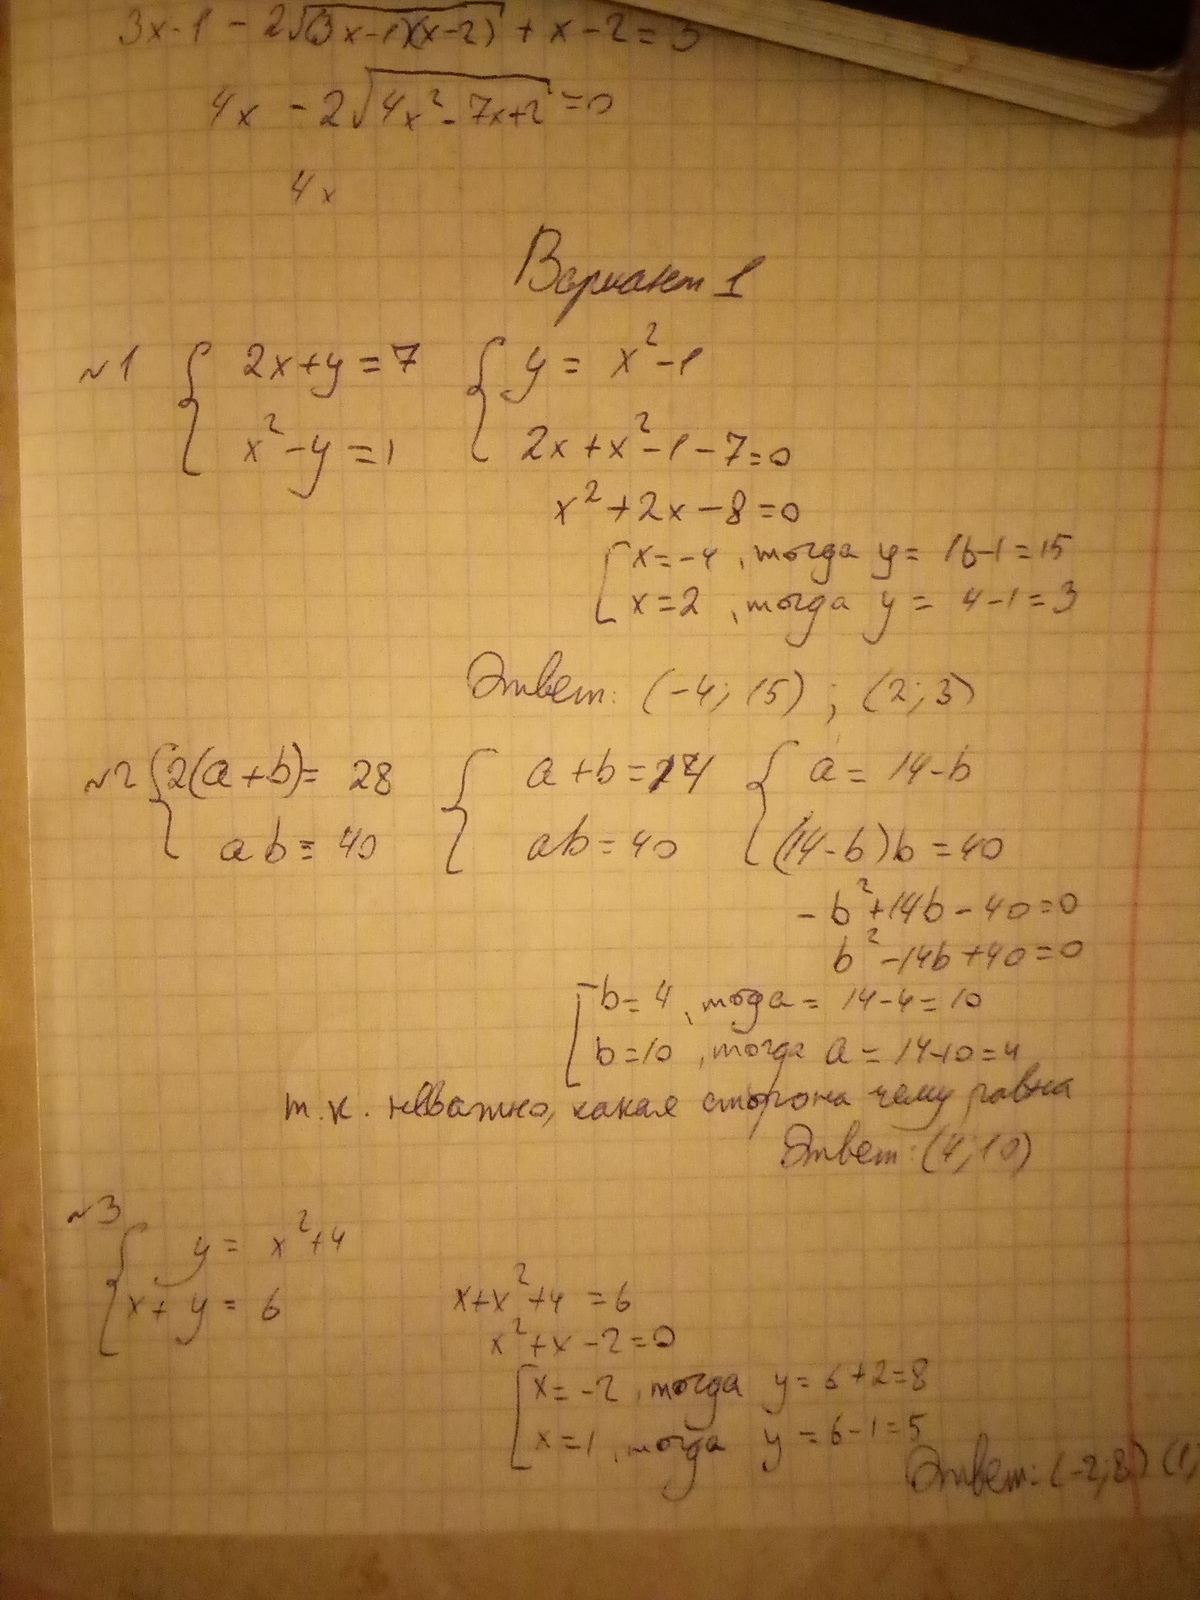 3x-1 - 2√(3x-1)(x-2) + x-2 = 3
4x - 2√4x²-7x+2 = 0
4x
Вариант 1
№1 { 2x+y=7 { y = x²-1
x²-y=1 2x+x²-1-7=0
x²+2x-8=0
[ x=-4, тогда y= 16-1=15
x=2, тогда y = 4-1=3
Ответ: (-4; 15) ; (2; 3)
№2 { 2(a+b)= 28 { a+b=14 { a= 14-b
ab= 40 ab=40 (14-b)b=40
-b²+14b-40=0
b²-14b+40=0
[ b=4, тогда = 14-4=10
b=10, тогда a=14-10=4
т.к. неважно, какая сторона чему равна
Ответ: (4;10)
№3
{ y= x²+4
x+y= 6 x+x²+4 =6
x²+x-2=0
[ x=-2, тогда y=6+2=8
x=1, тогда y=6-1=5
Ответ: (-2;8) (1;